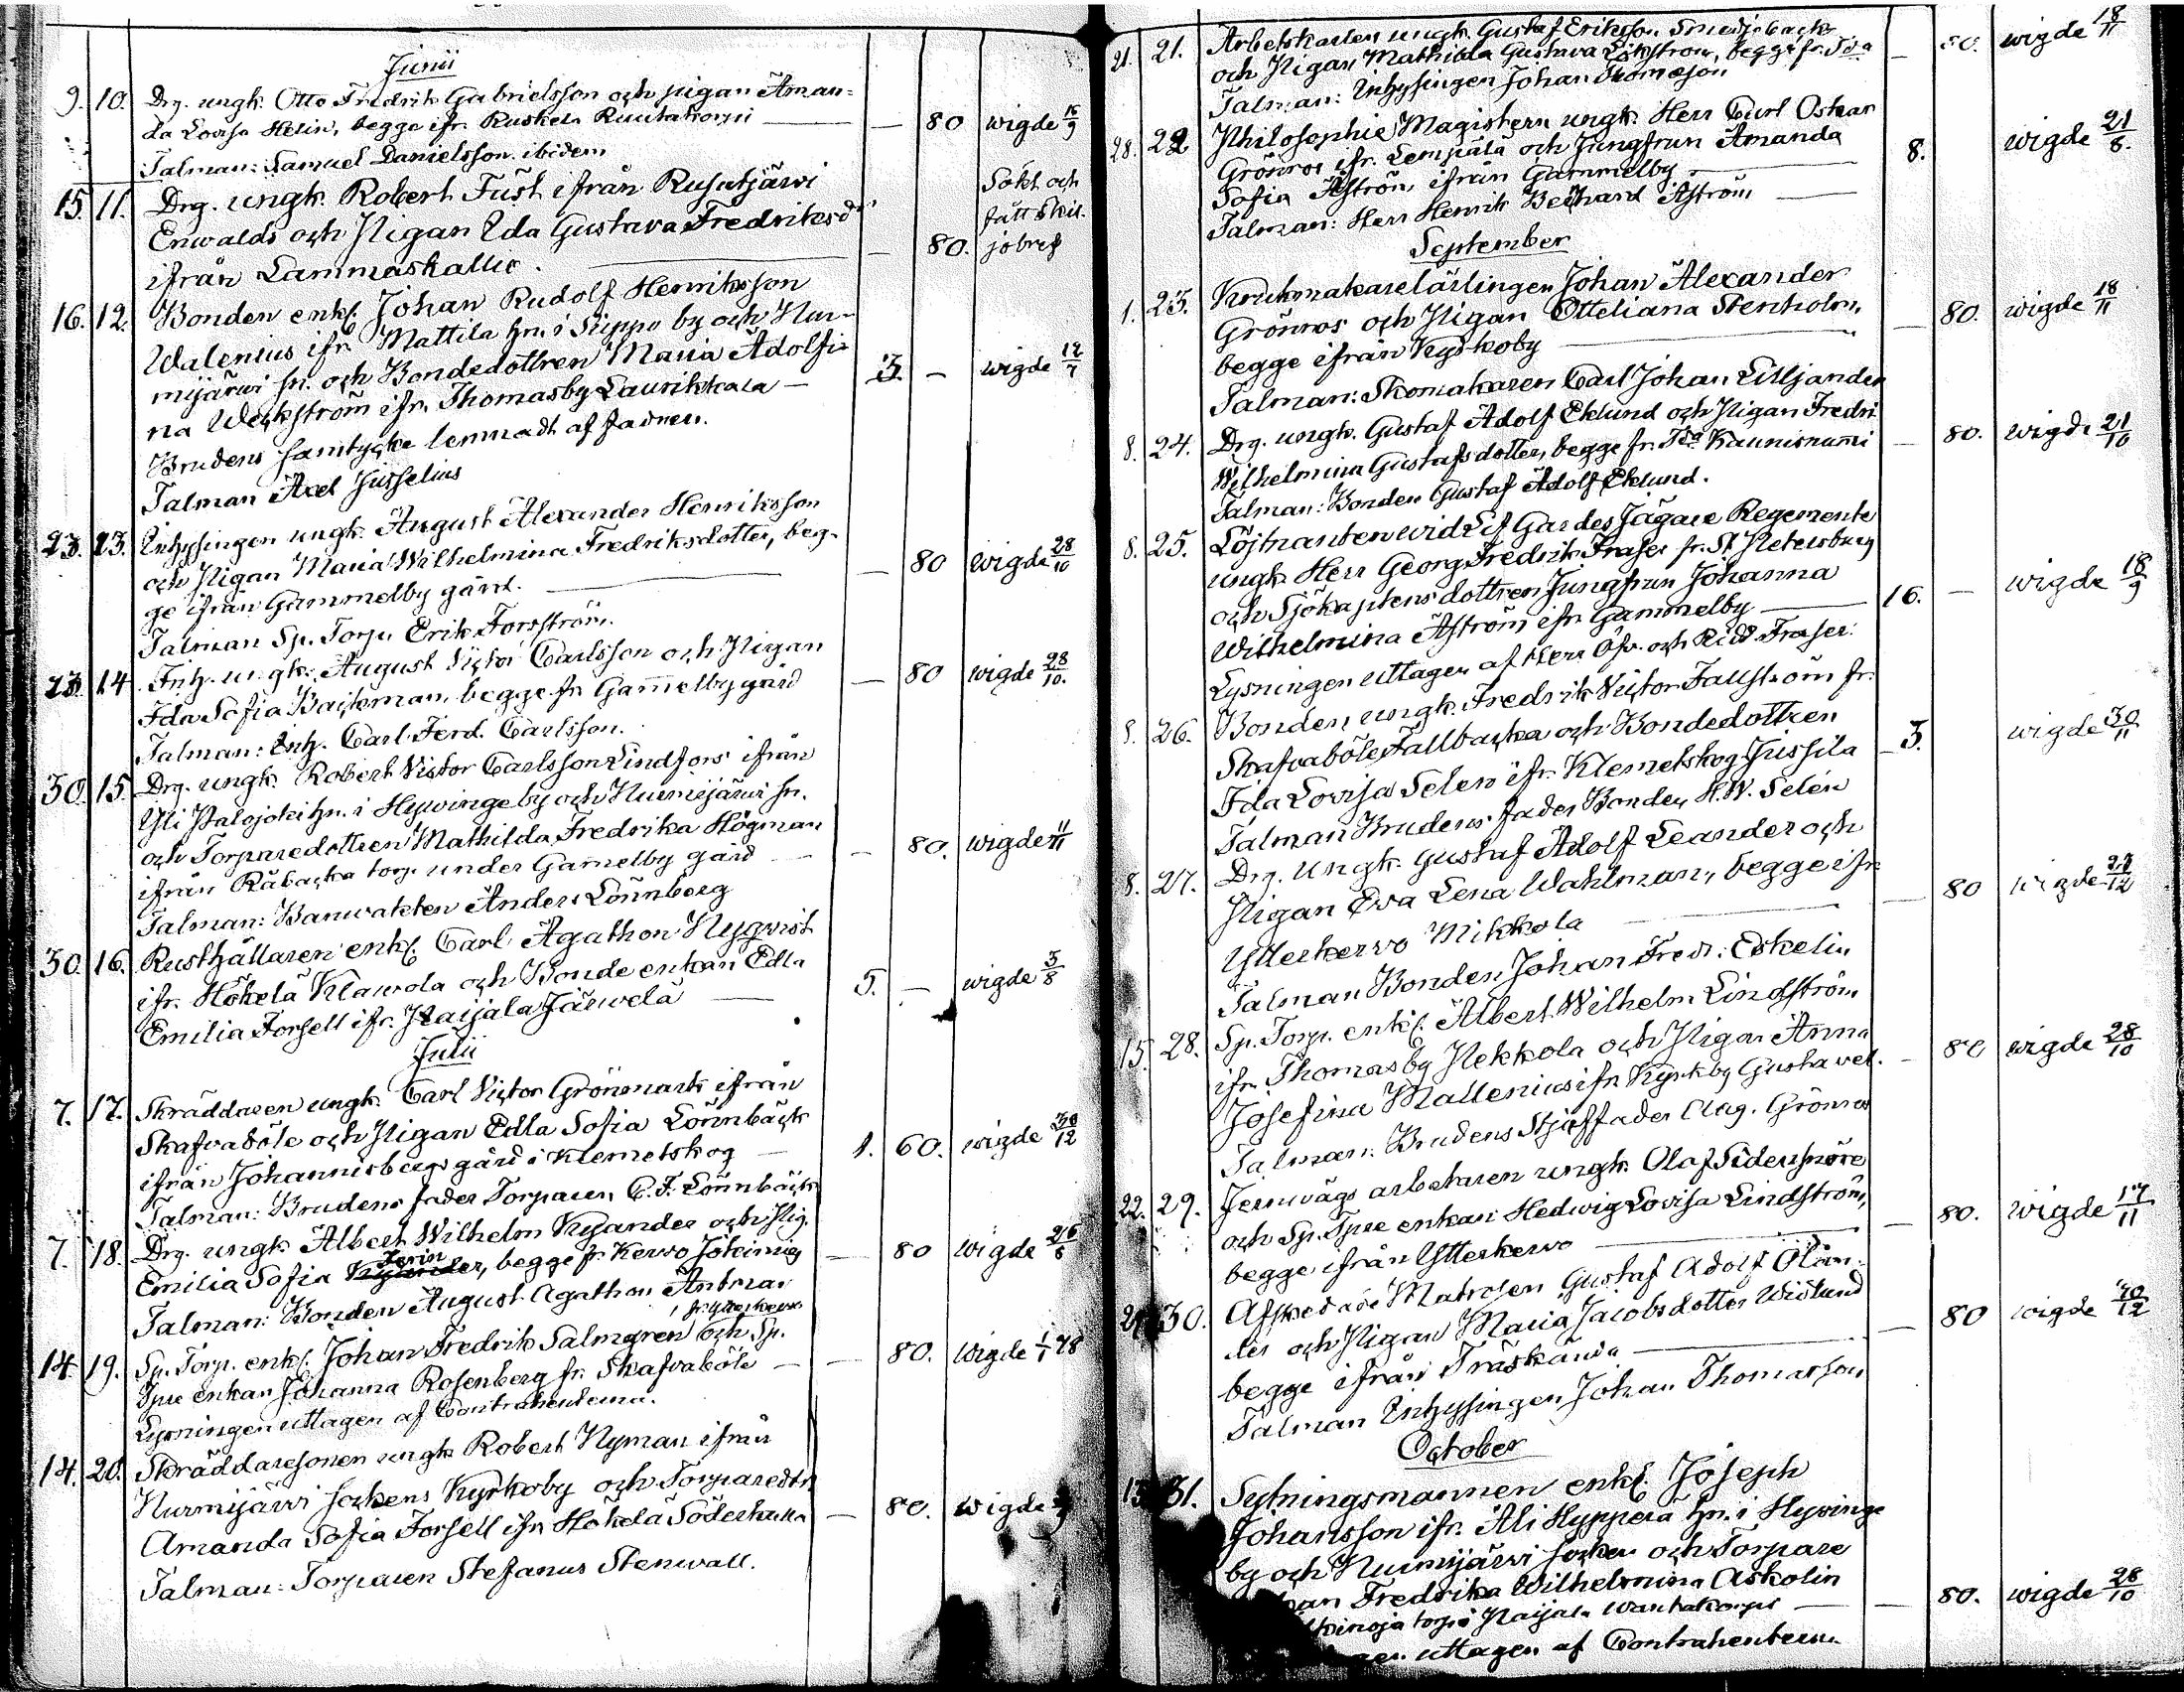 Junii
9. 10. Drg. ungk. Otto Fredrik Gabrielsson och pigan Aman-
da Lovisa Helin, begge ifr. Ruskela Ruutakorpi — 80 wigde 16/9
Talman: Samuel Danielsson ibidem
15. 11. Drg. ungk. Robert Tust ifrån Rusutjärwi
Enwalds och Pigan Ida Gustava Fredriksdr
ifrån Lammaskallio. — 80. Sökt och
fått Skil-
jobref
16. 12. Bonden enkl. Johan Rudolf Henriksson
Walenius ifr. Mattila hn. i Suppo by och Nur-
mijärwi sn. och Bondedottren Maria Adolfi-
na Weckström ifr. Thomasby Laurikkala — 3. — wigde 12/7
Brudens samtycke lemnadt af fadren.
Talman Axel Jusselius
23. 13. Inhysingen ungk. August Alexander Henriksson
och Pigan Maria Wilhelmina Fredriksdotter, beg-
ge ifrån Gammelby gård. — 80 wigde 28/10
Talman Sp. Torp. Erik Forsström.
23. 14. Inh. ungk. August Victor Carlsson och Pigan
Ida Sofia Backman, begge fr. Gamelby gård — 80 wigde 28/10.
Talman: Inh. Carl Ferd. Carlsson.
30. 15. Drg. ungk. Robert Victor Carlsson Lindfors ifrån
Yli Palojoki hn. i Hywinge by och Nurmijärwi sn.
och Torparedottren Mathilda Fredrika Högman
ifrån Råbacka torp under Gamelby gård — 80. wigde 11/11
Talman: Banwakten Anders Lönnberg
30. 16. Rusthållaren enkl. Carl Agathon Nyqwist
ifr. Hökelä Klawola och Bonde enkan Edla
Emilia Forsell ifr. Paijala Järwelä — 5. — wigde 5/8
Julii
7. 17. Skräddaren ungk. Carl Victor Grönmark ifrån
Skafvaböle och Pigan Edla Sofia Lönnbäck
ifrån Johannisbergs gård i Klemetskog — 1. 60. wigde 30/12
Talman: Brudens fader Torparen C. F. Lönnbäck
7. 18. Drg. ungk. Albert Wilhelm Kyander och Pig.
Emilia Sofia Kyander, begge fr. Kerwo Jokimies — 80 wigde 26/8
Talman: Bonden August Agathon Antman
14. 19. Sp. Torp. enkl. Johan Fredrik Salmgren, fr. Ytterkerwo och Sp.
Tpre enkan Johanna Rosenberg fr. Skafvaböle — 80. wigde 1/1 78
Lysningen uttagen af Contrahenterna.
14. 20. Skräddaresonen ungk. Robert Nyman ifrån
Nurmijärwi sockens Kyrkoby och Torparedtr.
Amanda Sofia Forsell ifr. Hökelä Söderkulla — 80. wigde
Talman: Torparen Stefanus Stenwall.
21. 21. Arbetskarlen ungk. Gustaf Eriksson Smedjebacka
och Pigan Mathilda Gustava Ekström, begge fr. — 80. wigde 18/11
Talman: Inhysingen Johan Thomasson
28. 22 Philosophie Magistern ungk. Herr Carl Oskar
Grönros ifr. Lempälä och Jungfrun Amanda
Sofia Åström ifrån Gammelby — 8. wigde 21/8.
Talman: Herr Henrik Berhard Åström
September
1. 23. Krukmakarelärlingen Johan Alexander
Grönros och Pigan Otteliana Stenholm,
begge ifrån Kyrkoby — 80. wigde 18/11
Talman: Skomakaren Carl Johan Liljander
8. 24. Drg. ungk. Gustaf Adolf Eklund och Pigan Fredri.
Wilhelmina Gustafsdotter, begge fr. Kaunisnumi — 80. wigde 21/10
Talman: Bonden Gustaf Adolf Eklund.
8. 25. Löjtnanten wid Lif Gardes Jägare Regemente
ungk. Herr Georg Fredrik Fraser fr. St. Petersburg
och Sjökaptensdottren Jungfrun Johanna
Wilhelmina Åström ifr. Gammelby — 16. — wigde 18/9
Lysningen uttagen af Herr Öfv. och Ridd. Fraser.
8. 26. Bonden ungk. Fredrik Victor Fallström fr.
Skafvaböle Fallbacka och Bondedottren
Ida Lovisa Selen ifr. Klemetskog Jussila — 3. wigde 30/11
Talman Brudens fader Bonden H. W. Selén
8. 27. Drg. Ungk. Gustaf Adolf Leander och
Pigan Eva Lena Wahlman, begge ifr.
Ytterkerwo Mikkola — 80 wigde 27/12
Talman Bonden Johan Fredr. Eskelin
15. 28. Sp. Torp. enkl. Albert Wilhelm Lindström
ifr. Thomasby Pekkola och Pigan Anna
Josefina Mallenius ifr. Kyrkby Gustavel. — 80 wigde 28/10
Talman: Brudens Stjuffader Aug. Grönros
22. 29. Jernvägs arbetaren ungk. Olaf Sidensnöre
och Sp. Tpre enkan Hedwig Lovisa Lindström,
begge ifrån Ytterkerwo — 80. wigde 17/11
30. Afskedade Matrosen Gustaf Adolf Ölan-
der och Pigan Maria Jacobsdotter Widlund
begge ifrån Träskända — 80 wigde 30/12
Talman Inhysingen Johan Thomasson
October
13. 31. Sytningsmannen enkl. Joseph
Johansson ifr. Ali Hyppera hn. i Hywinge
by och Nurmijärwi socken och Torpare
Fredrika Wilhelmina Askolin
torp i Paijala Wantakorpi — 80. wigde 28/10
uttagen af Contrahenterna.